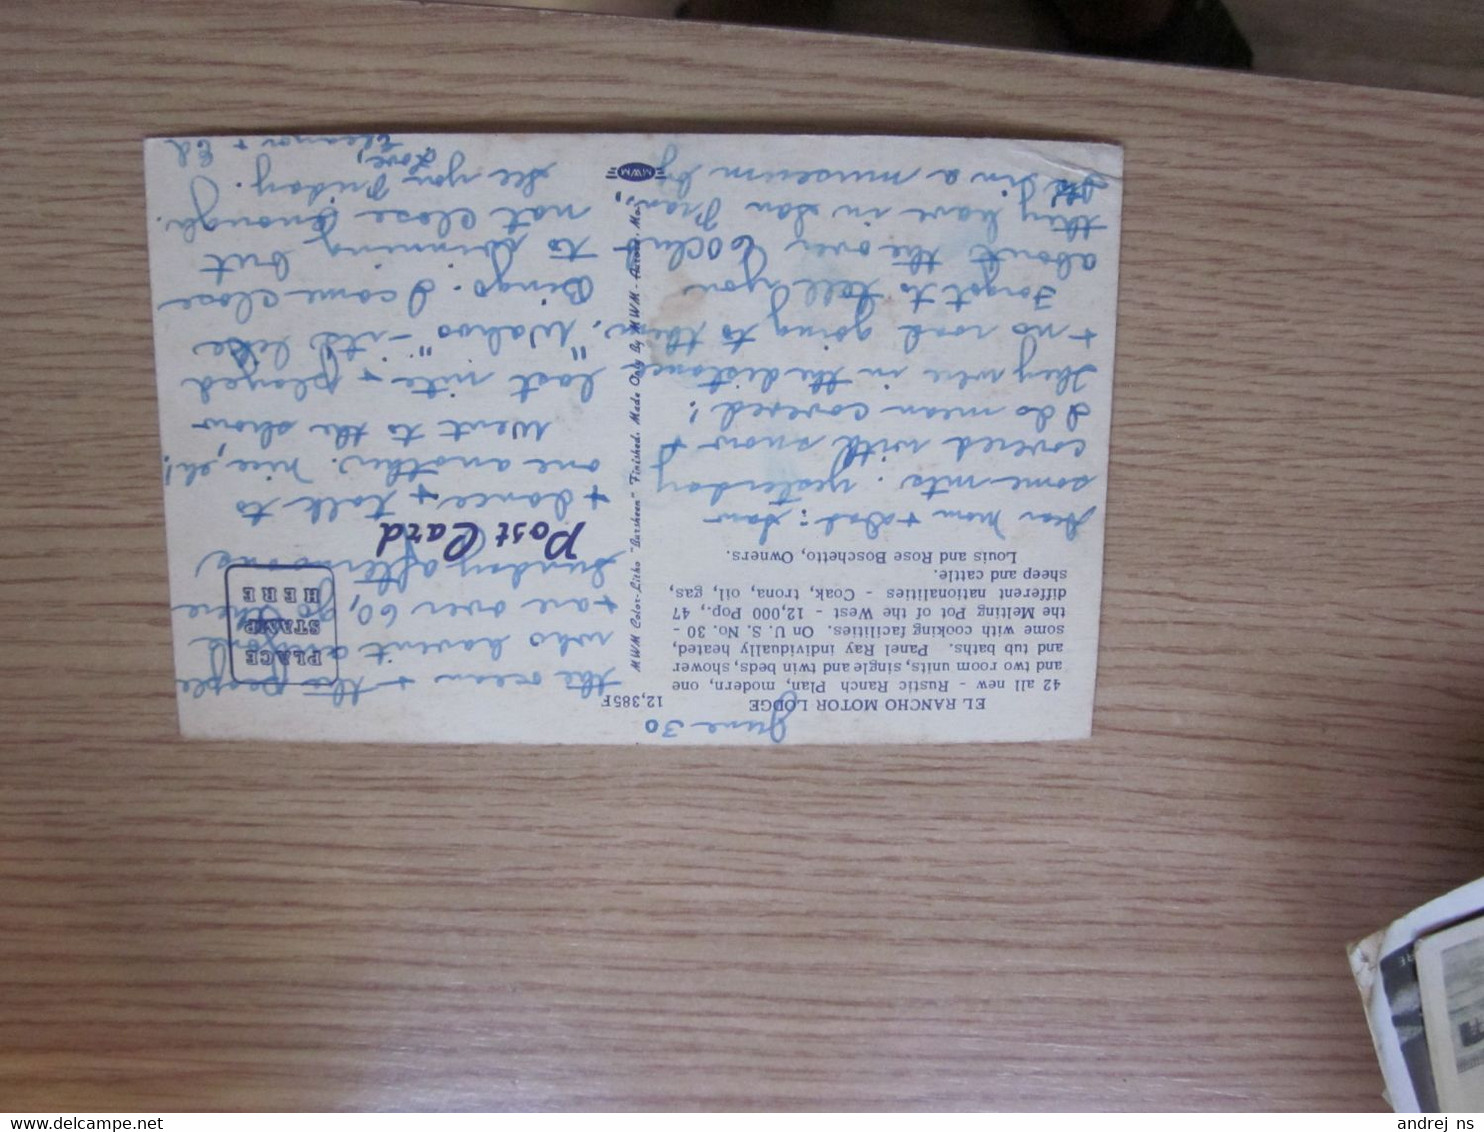 June 30
EL RANCHO MOTOR LODGE
42 all new - Rustic Ranch Plan, modern, one
and two room units, single and twin beds, shower
and tub baths. Panel Ray individually heated,
some with cooking facilities. On U. S. No. 30 -
the Melting Pot of the West - 12,000 Pop., 47
different nationalities - Coak, trona, oil, gas,
sheep and cattle.
Louis and Rose Boschetto, Owners.
Dear Mom + Dad: Saw
some mts. yesterday
covered with snow +
I do mean covered!
They were in the distance
+ no road going to them.
Forgot to tell you
about the over 60 club
they have in San Fran.,
It's in a museum by
12,385F
MWM Color-Litho "Barsheen" Finished. Made Only By MWM - Aurora, Mo.
MWM
the ocean + the people
who havent anyone
+ are over 60, go there
Sunday afternoon
+ dance + talk to
one another. Nice, eh!
Went to the show
last nite + played
"Wahoo" - it's like
Bingo. I came close
to winning but
not close enough.
See you Friday.
Love,
Eleanor + Ed
Post Card
PLACE
STAMP
HERE
andrej ns